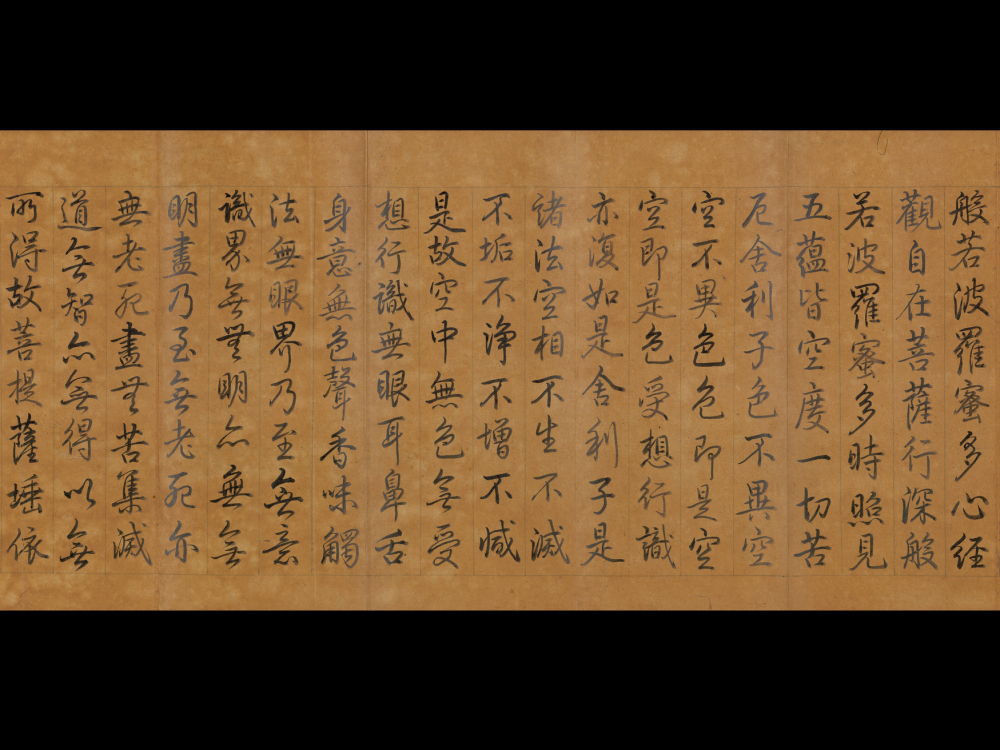 般若波羅蜜多心經
觀自在菩薩行深般
若波羅蜜多時照見
五蘊皆空度一切苦
厄舍利子色不異空
空不異色色即是空
空即是色受想行識
亦復如是舍利子是
諸法空相不生不滅
不垢不淨不增不減
是故空中無色無受
想行識無眼耳鼻舌
身意無色聲香味觸
法無眼界乃至無意
識界無無明亦無無
明盡乃至無老死亦
無老死盡無苦集滅
道無智亦無得以無
所得故菩提薩埵依